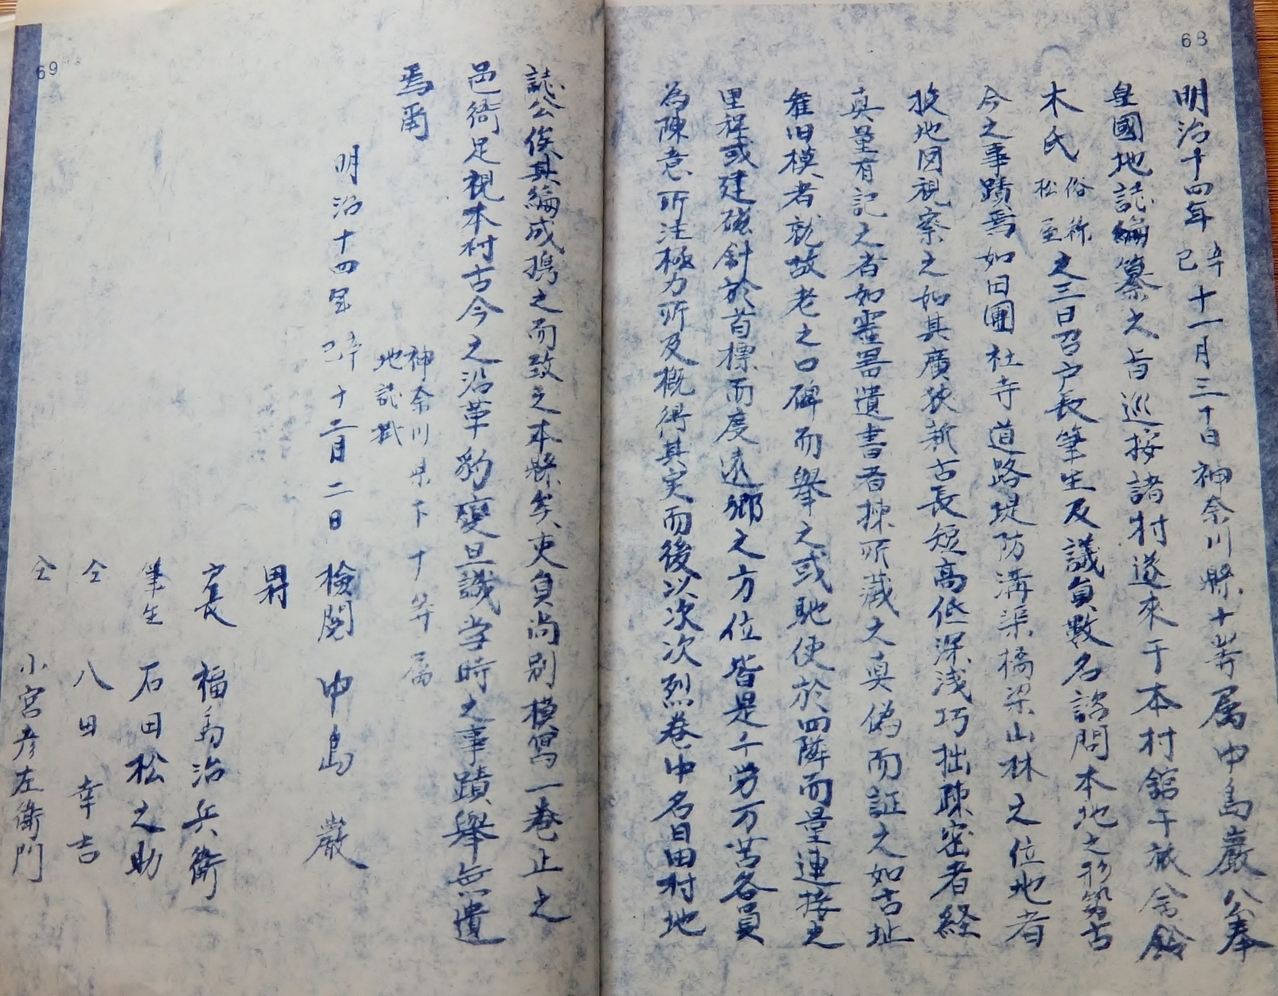 68
明治十四年辛巳十一月三十日神奈川縣十等属中島巖公奉
皇國地誌編纂之旨巡按諸村遂來于本村舘于旅舎鈴
木氏俗称松至之三日召戸長筆生及議員數名諮問本地之形勢古
今之事蹟焉如旧圃社寺道路堤防溝渠橋梁山林之位地者
按地図視察之如其廣狭新古長短高低深浅巧拙疎密者経
真量有記之者如叢署遺書者揀所蔵之真偽而証之如古址
旧模者就故老之口碑而舉之或馳使於四隣而量連接之
里程或建磁針於首標而度遠郷之方位皆是千労万苦各員
為陳意所注極力所及概得其実而後以次次烈巻中名曰田村地
69
誌公俟其編成携之而致之本縣矣吏員尚別模写一巻止之
邑衙足視本村古今之沿革豹變且識当時之事蹟舉無遺
焉爾
明治十四年辛巳十二月二日
神奈川県下十等属
地誌掛
検閲 中島 巌
戸長 福島治兵衛
筆生 石田松之助
仝 八田幸吉
仝 小宮彦左衛門